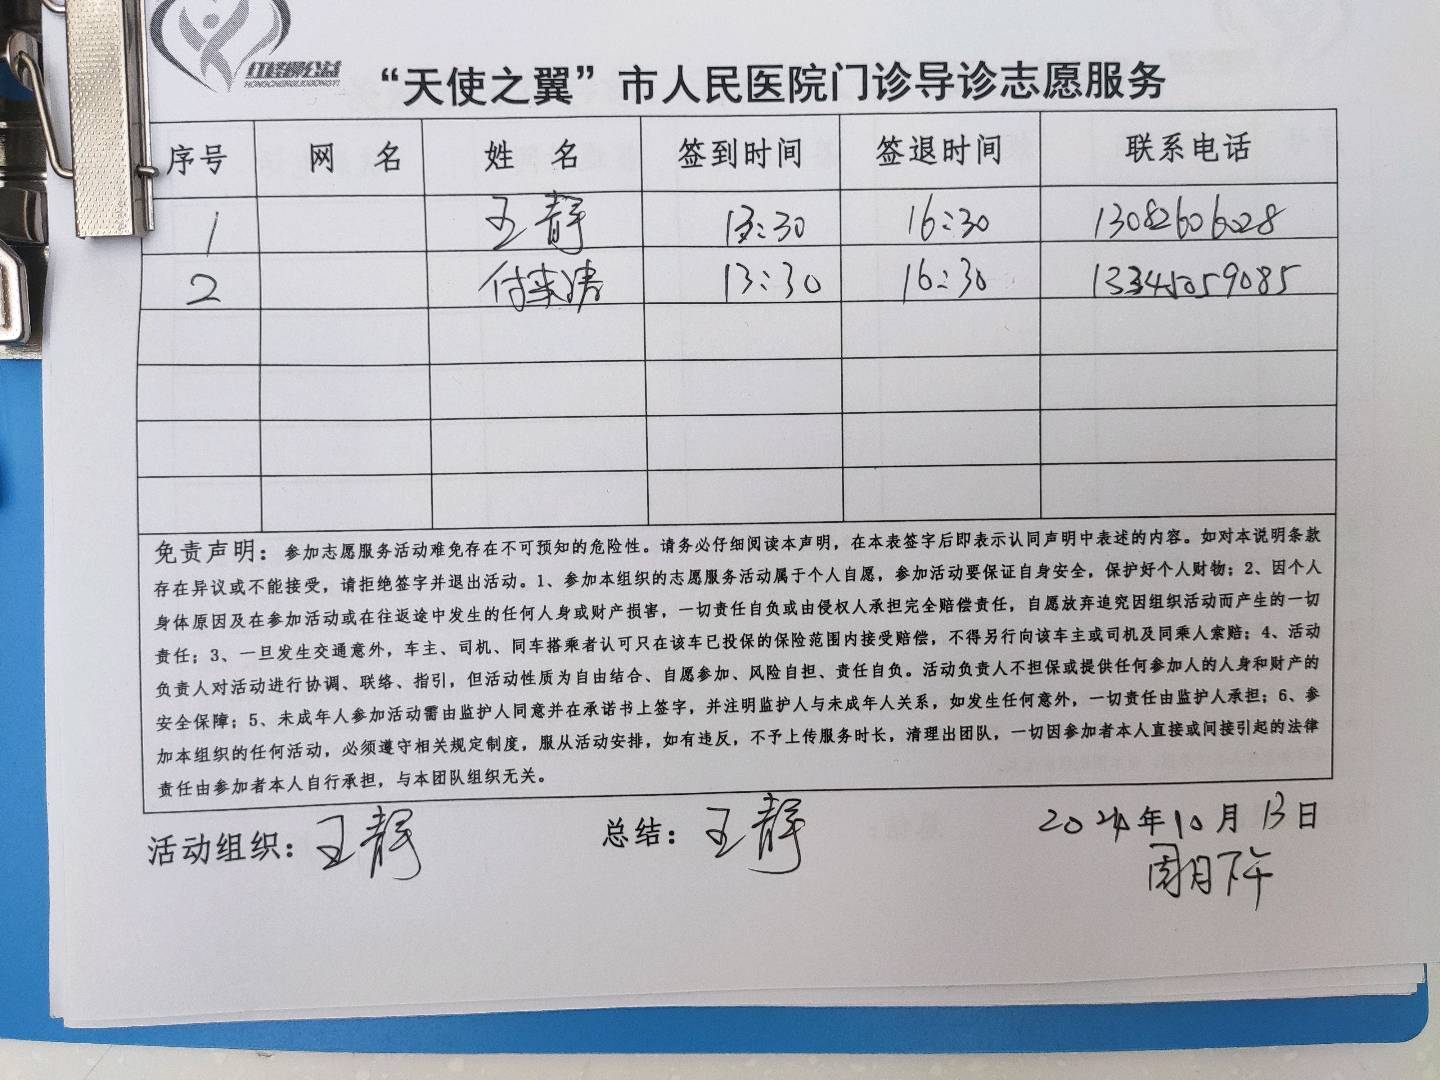 “天使之翼”市人民医院门诊导诊志愿服务
序号 网 名 姓 名 签到时间 签退时间 联系电话
1 王静 13:30 16:30 13082606028
2 13:30 16:30 13345059085
免责声明：参加志愿服务活动难免存在不可预知的危险性。请务必仔细阅读本声明，在本表签字后即表示认同声明中表述的内容。如对本说明条款
存在异议或不能接受，请拒绝签字并退出活动。1、参加本组织的志愿服务活动属于个人自愿，参加活动要保证自身安全，保护好个人财物；2、因个人
身体原因及在参加活动或在往返途中发生的任何人身或财产损害，一切责任自负或由侵权人承担完全赔偿责任，自愿放弃追究因组织活动而产生的一切
责任；3、一旦发生交通意外，车主、司机、同车搭乘者认可只在该车已投保的保险范围内接受赔偿，不得另行向该车主或司机及同乘人索赔；4、活动
负责人对活动进行协调、联络、指引，但活动性质为自由结合、自愿参加、风险自担、责任自负。活动负责人不担保或提供任何参加人的人身和财产的
安全保障；5、未成年人参加活动需由监护人同意并在承诺书上签字，并注明监护人与未成年人关系，如发生任何意外，一切责任由监护人承担；6、参
加本组织的任何活动，必须遵守相关规定制度，服从活动安排，如有违反，不予上传服务时长，清理出团队，一切因参加者本人直接或间接引起的法律
责任由参加者本人自行承担，与本团队组织无关。
活动组织：王静 总结：王静 2024年10月13日
周日下午